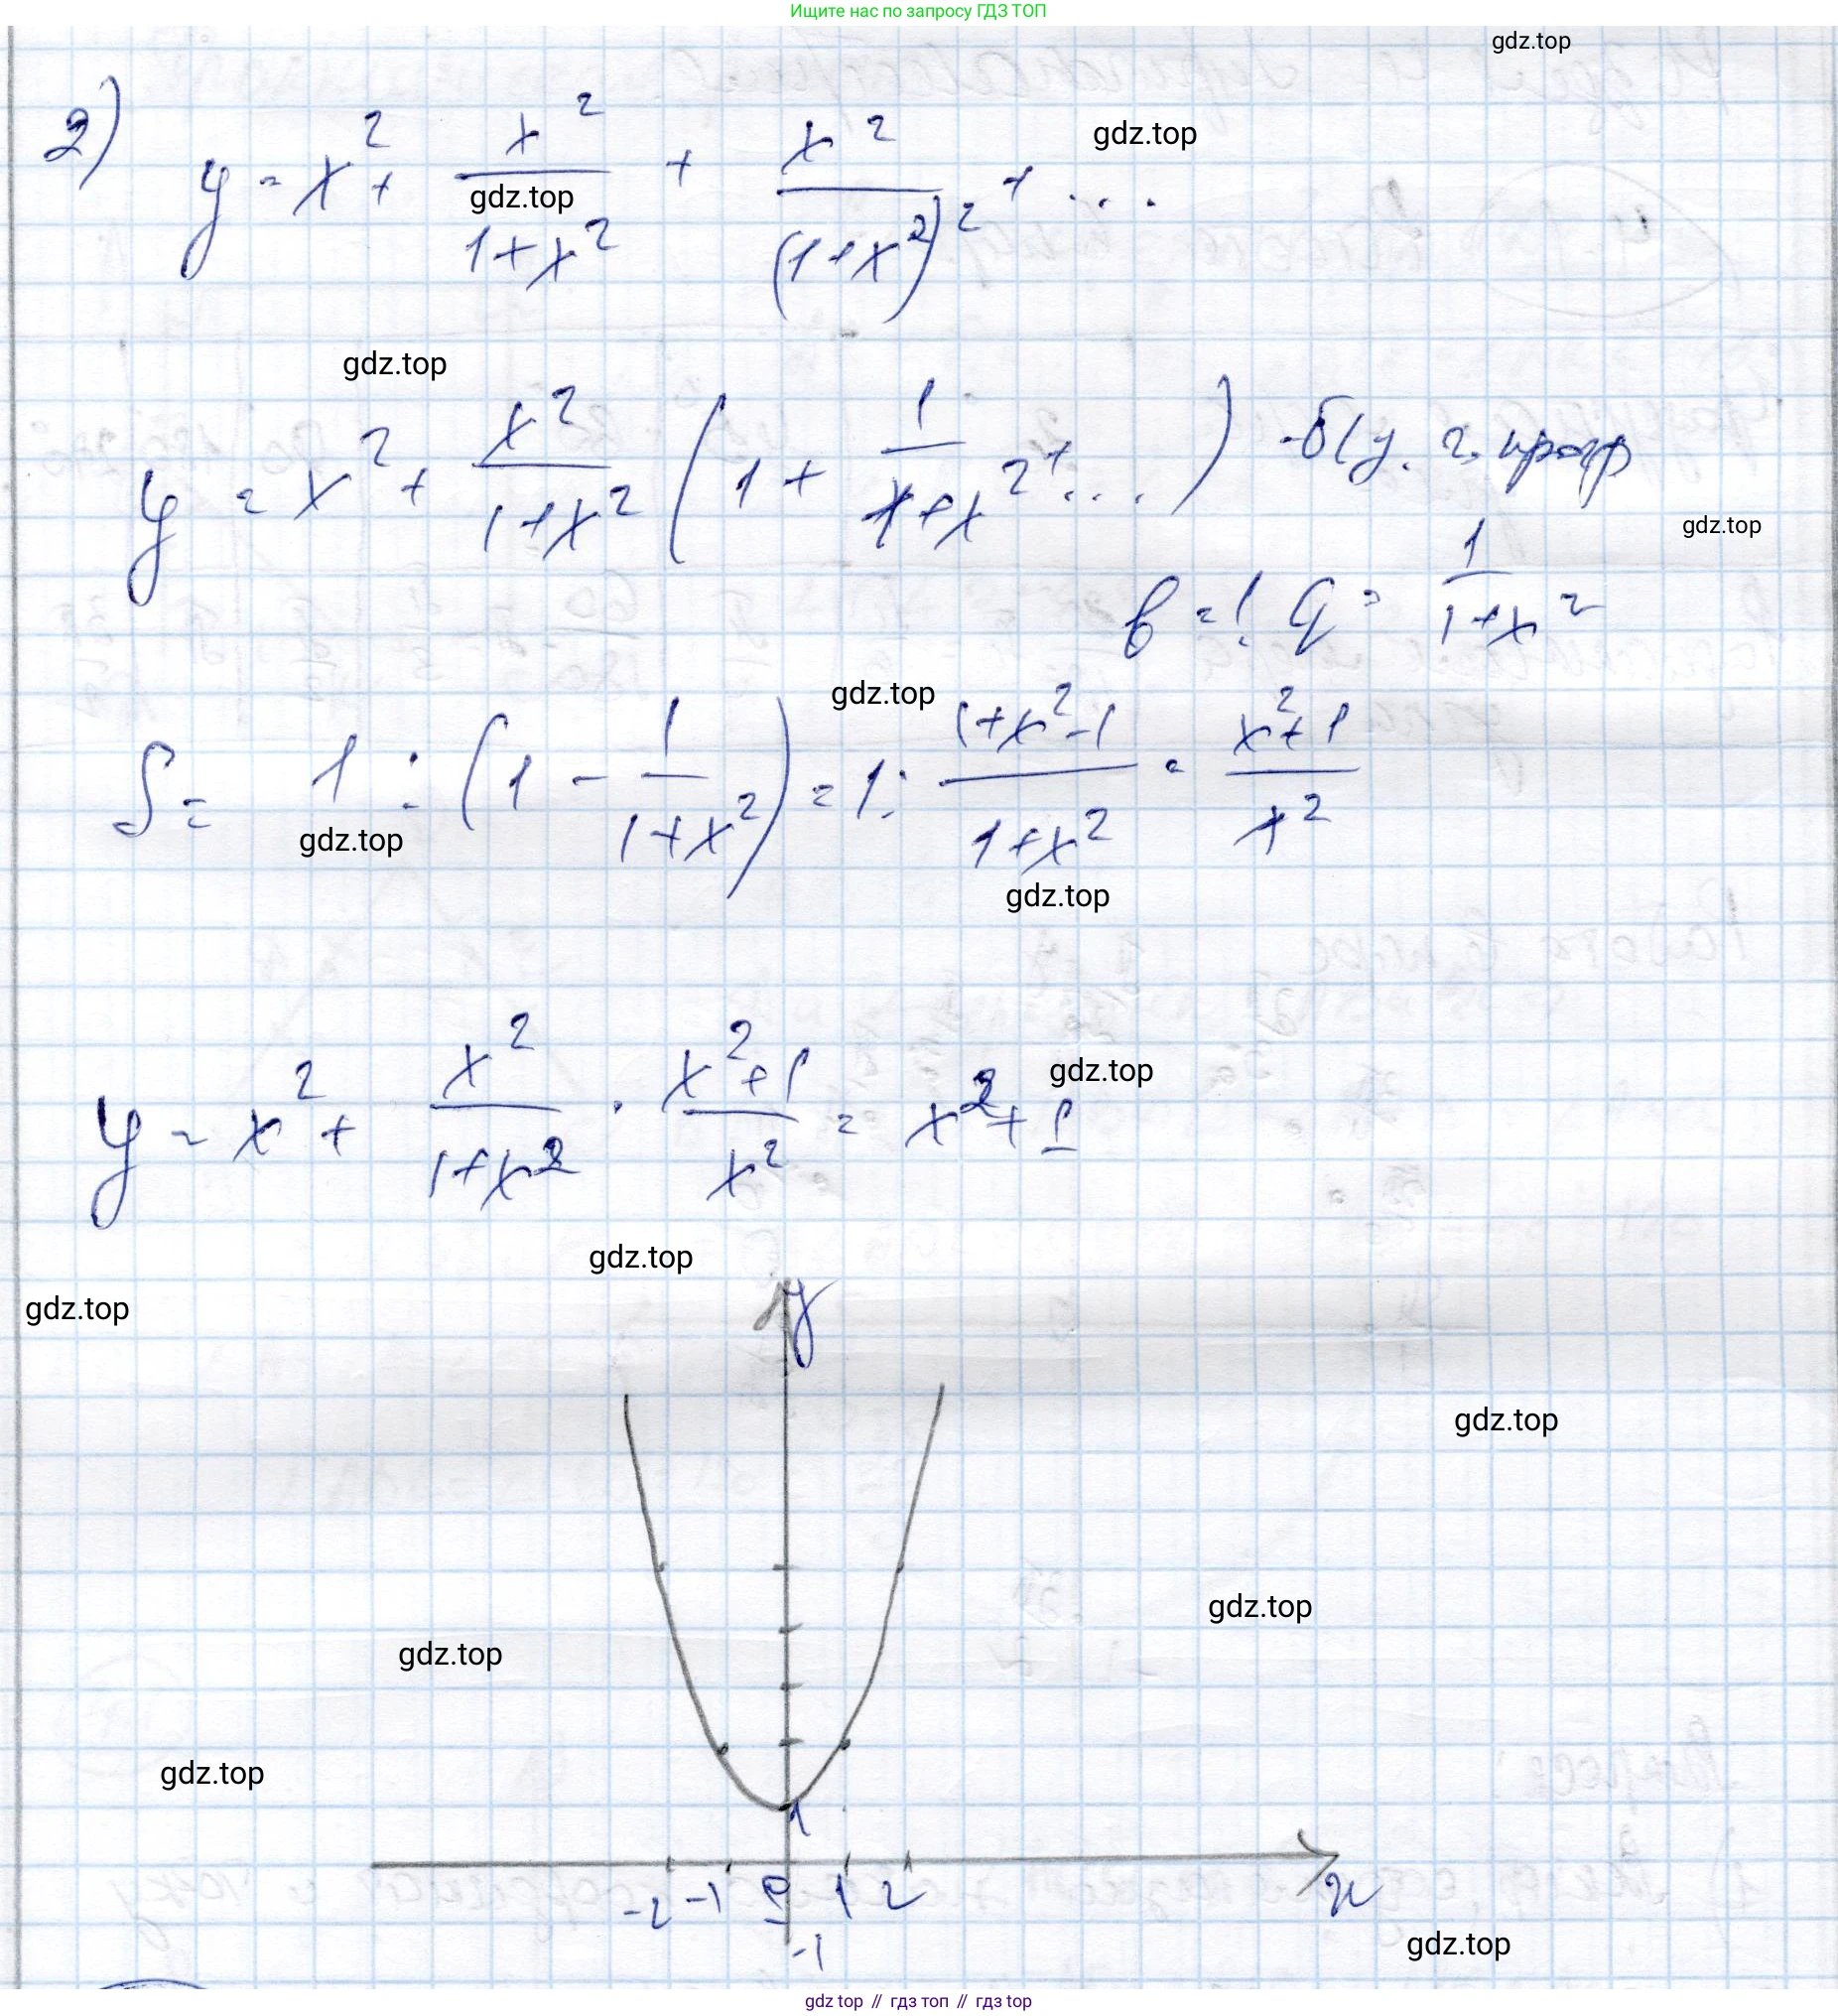 Ищите нас по запросу ГДЗ ТОП
gdz.top
2) y = x² + x²/(1+x²) + x²/(1+x²)² + ...
gdz.top
gdz.top
gdz.top
y = x² + x²/(1+x²) (1 + 1/(1+x²) + ...) - б/у. г. прогр
gdz.top
b = 1 q = 1/(1+x²)
gdz.top
S = 1 : (1 - 1/(1+x²)) = 1 : (1+x²-1)/(1+x²) = (x²+1)/x²
gdz.top
gdz.top
y = x² + x²/(1+x²) · (x²+1)/x² = x² + 1
gdz.top
gdz.top
gdz.top
y
gdz.top
gdz.top
gdz.top
gdz.top
1
-2 -1 0 1 2 x
-1
gdz.top
gdz top // гдз топ // гдз top